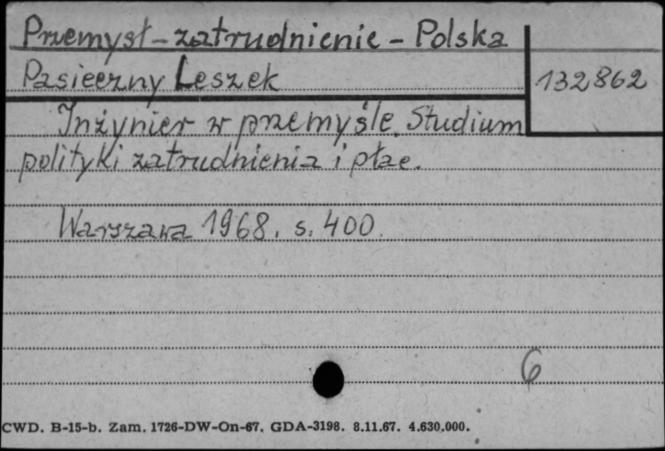 Przemysł - zatrudnienie - Polska
Pasieczny Leszek
132862
Inżynier w przemyśle. Studium
polityki zatrudnienia i płac.
Warszawa 1968. s. 400.
6
CWD. B-15-b. Zam. 1726-DW-On-67. GDA-3198. 8.11.67. 4.630.000.